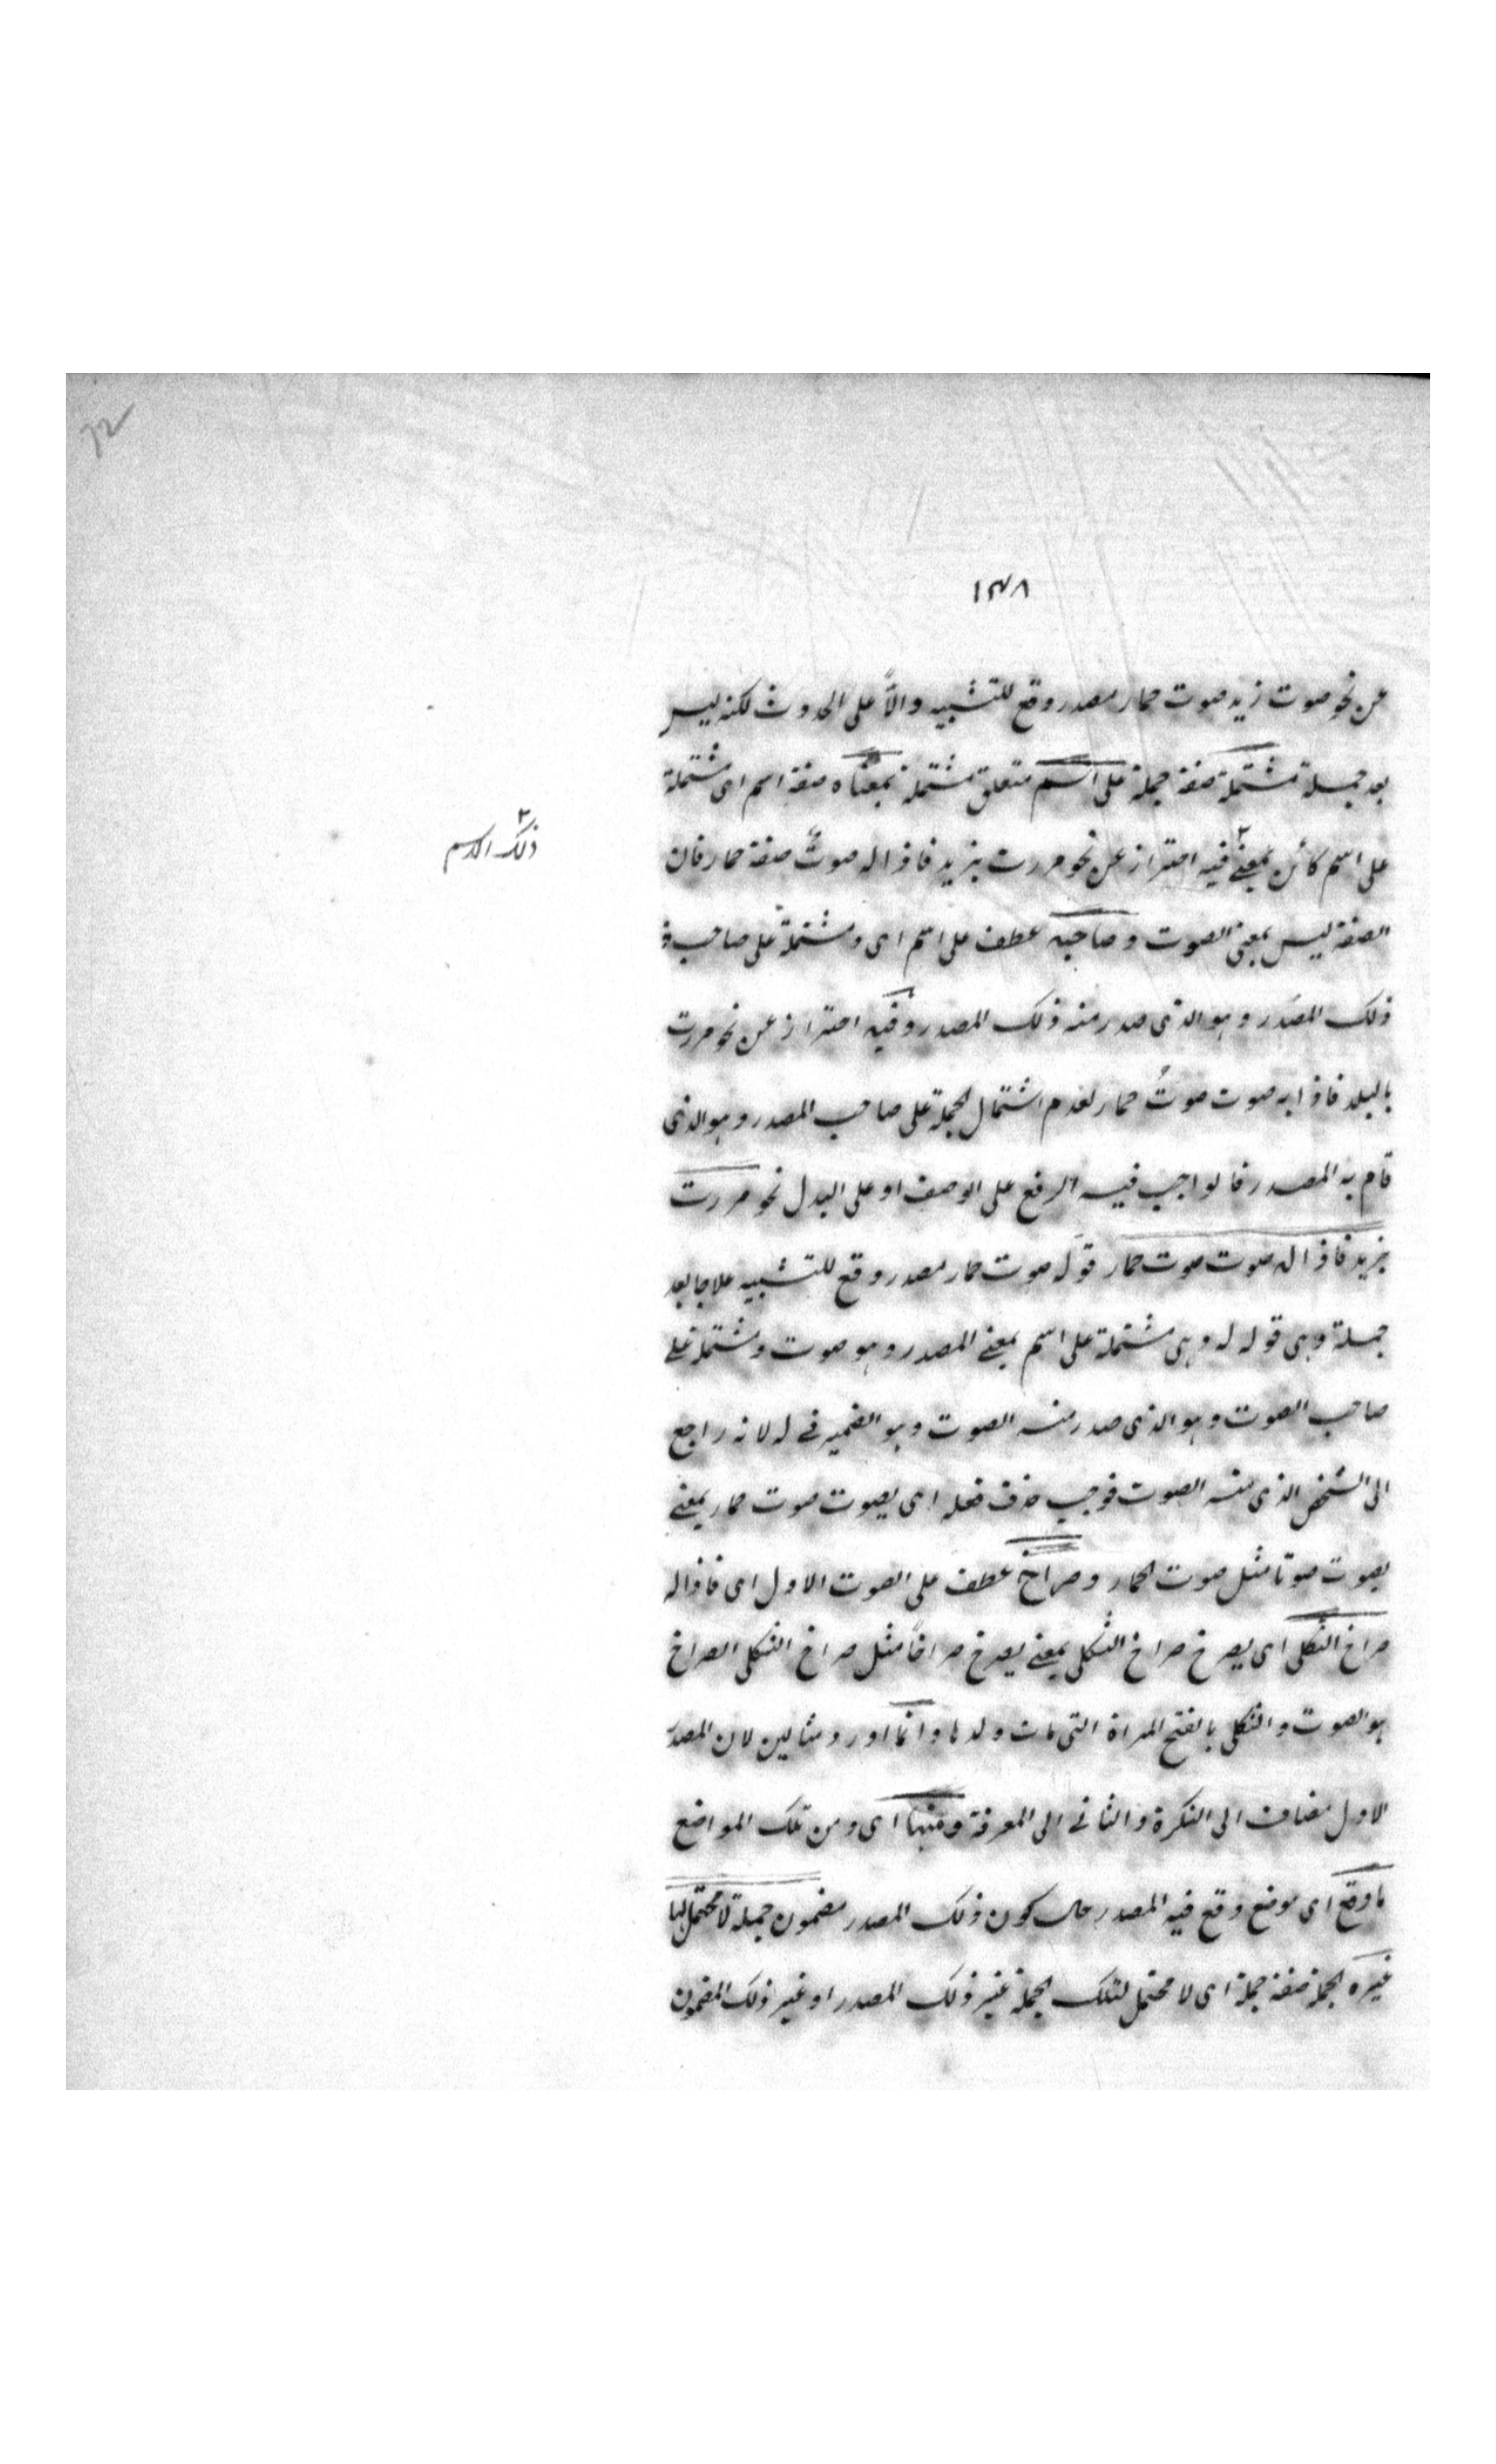 ١٣٨
عن نحو صوت زيد صوت حمار مصدر وقع للتشبيه والاً على الحدوث لكنه ليس
بعد جملة مشتملة صفة جملة على اسم متعلق بمشتملة بمعناه صفة اسم اى مشتملة
على اسم كائن بمعنى ٢ فيه احتراز عن نحو مررت بزيد فاذا له صوتٌ صفة حمار فان
ذلك الاسم ٢
الصفة ليس بمعنى الصوت وصاحبه عطف على اسم اى ومشتملة على صاحب
ذلك المصدر وهو الذى صدر منه ذلك المصدر وفيه احتراز عن نحو مررت
بالبلد فاذا به صوت صوتُ حمار لعدم اشتمال الجملة على صاحب المصدر وهو الذى
قام به المصدر فالواجب فيه الرفع على الوصف او على البدل نحو مررت
بزيد فاذا له صوت صوت حمار قوله صوت حمار مصدر وقع للتشبيه علاجا بعد
جملة وهى قوله له وهى مشتملة على اسم بمعنى المصدر وهو صوت ومشتملة على
صاحب الصوت وهو الذى صدر منه الصوت وهو الضمير فى له لانه راجع
الى الشخص الذى منه الصوت فوجب حذف فعله اى يصوت صوت حمار بمعنى
يصوت صوتا مثل صوت الحمار وصراخ عطف على الصوت الاول اى فاذا له
صراخ الثكلى اى يصرخ صراخ الثكلى بمعنى يصرخ صراخاً مثل صراخ الثكلى الصراخ
هو الصوت والثكلى بالفتح المراة التى مات ولدها وانما اورد مثالين لان المصدر
الاول مضاف الى النكرة والثانى الى المعرفة ومنها اى ومن تلك المواضع
ما وقع اى موضع وقع فيه المصدر حال كون ذلك المصدر مضمون جملة لا محتمل لها
غيره الجملة صفة جملة اى لا محتمل لتلك الجملة غير ذلك المصدر او غير ذلك المضمون